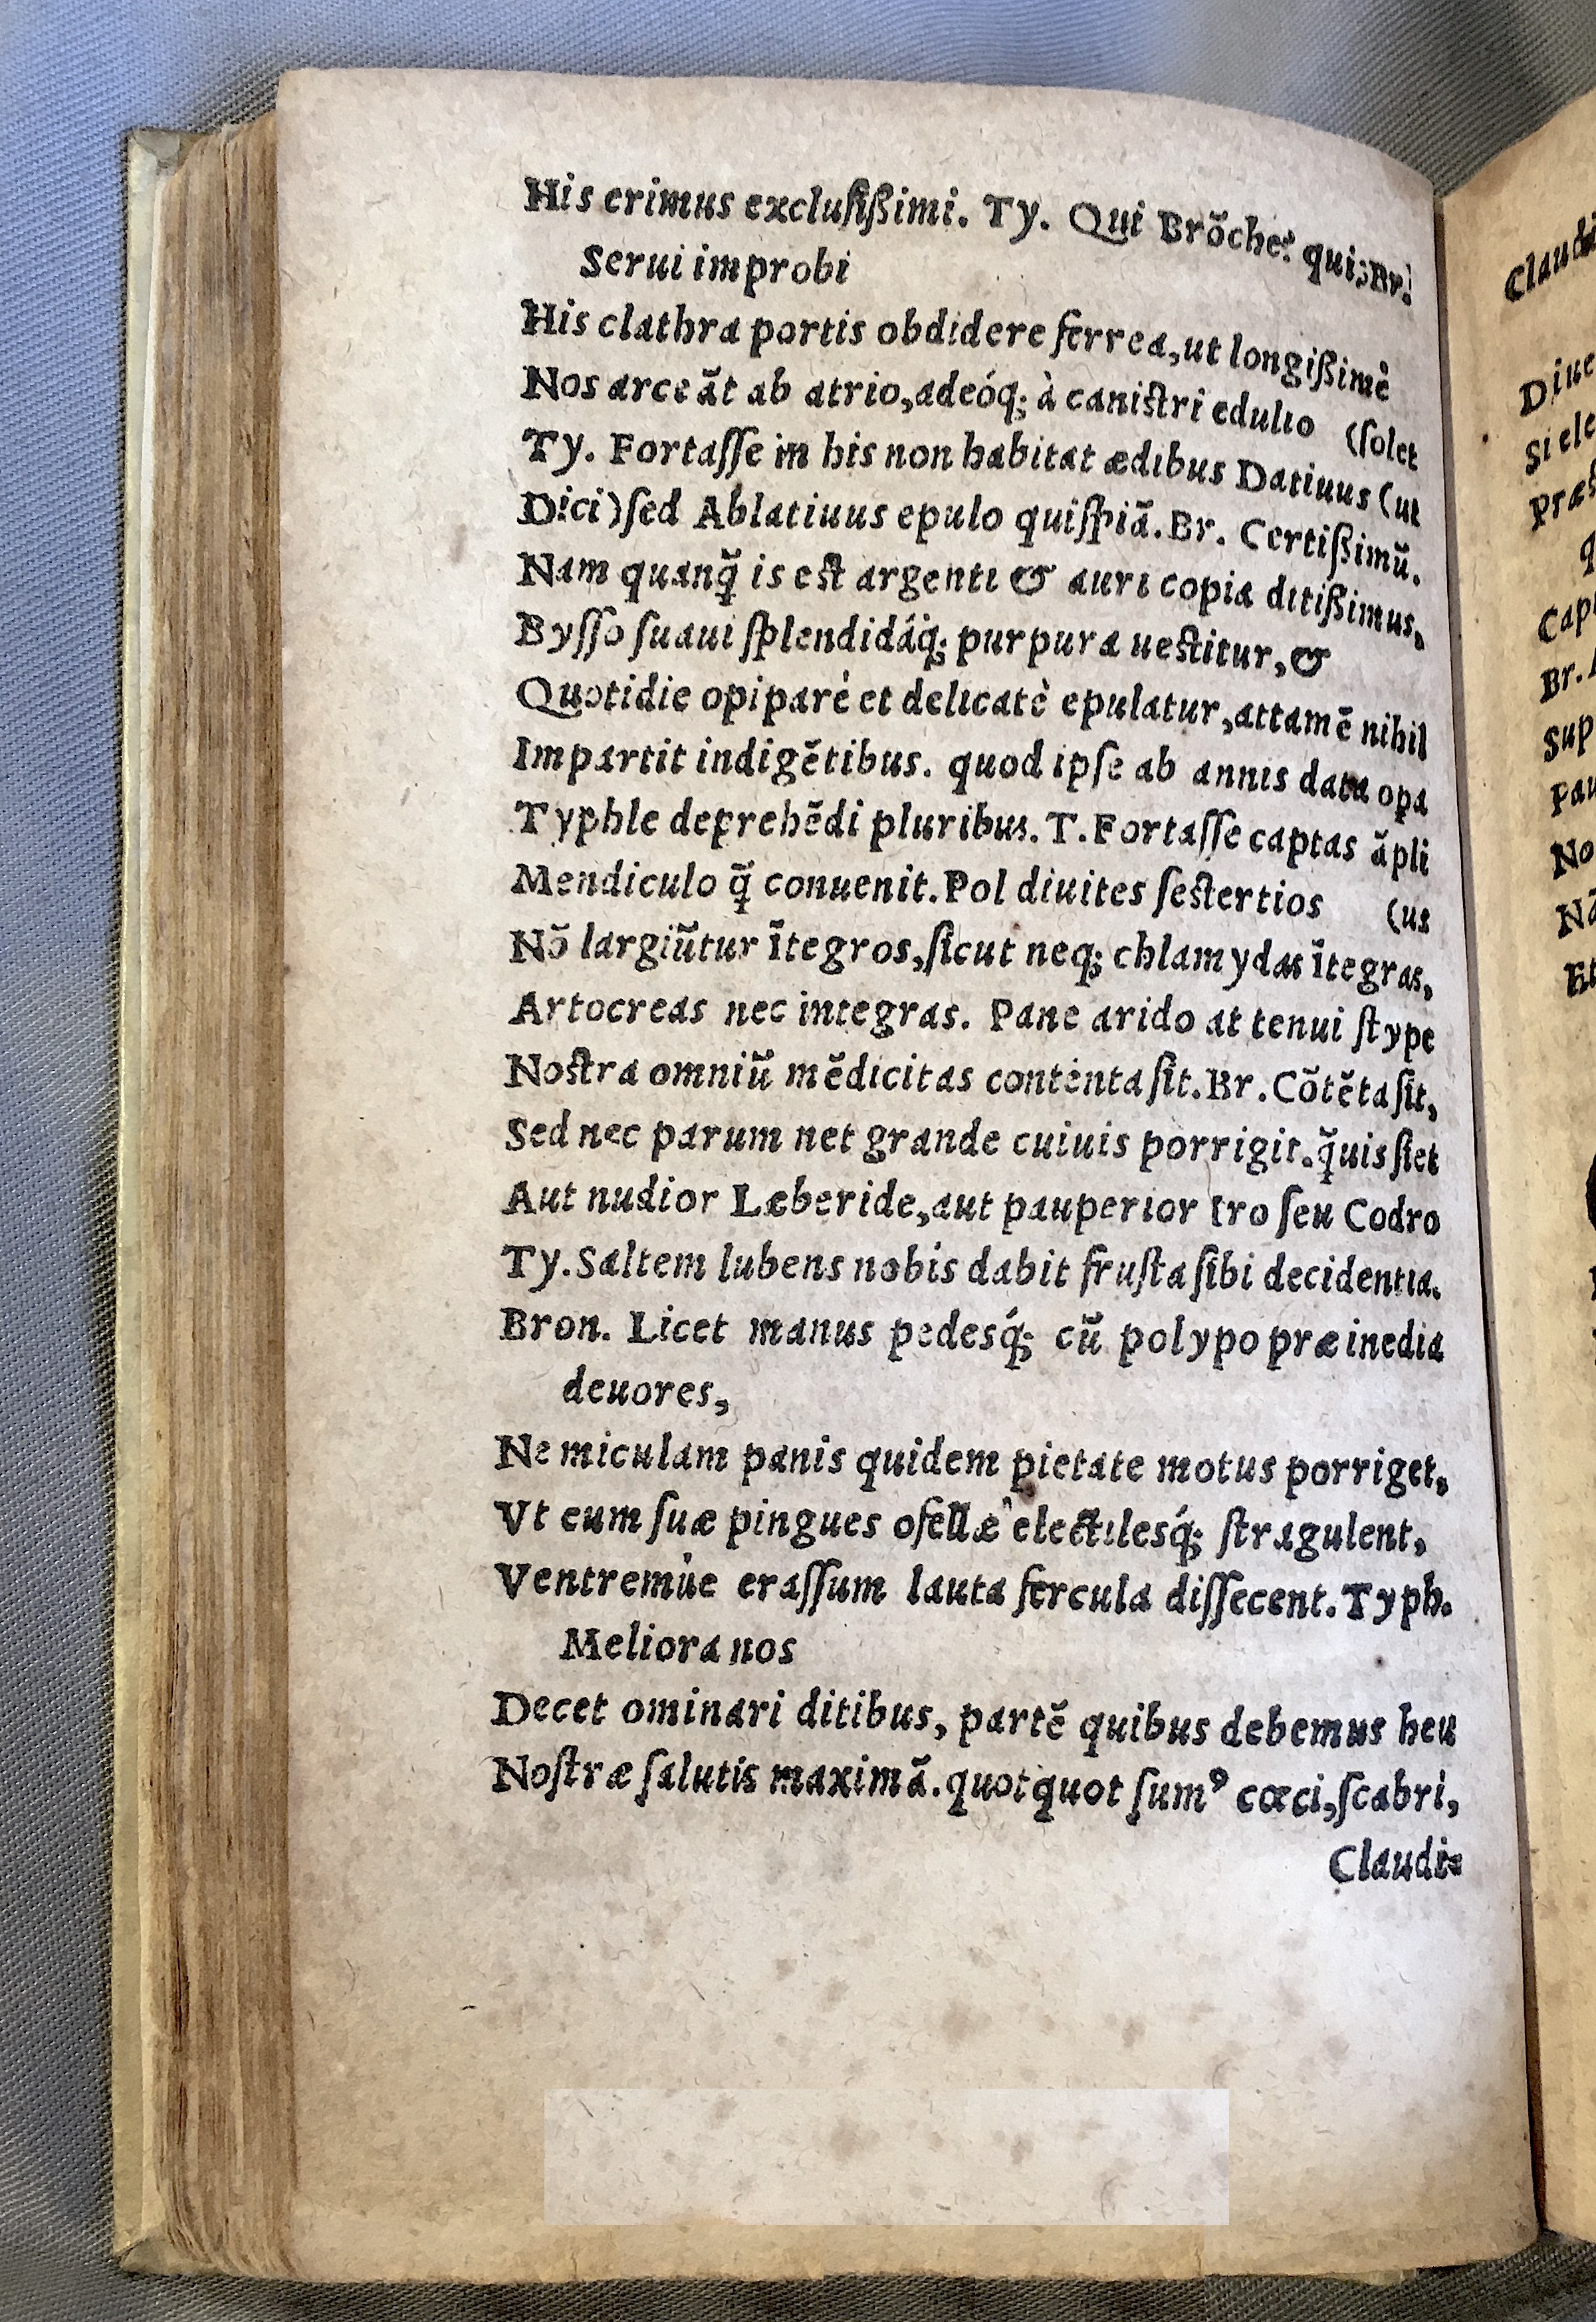 His erimus excluſißimi. Ty. Qui Brõche? qui? Br.
Serui improbi
His clathra portis obdidere ferrea, ut longißimè
Nos arceãt ab atrio, adeóq; à caniſtri edulio (ſolet
Ty. Fortaſſe in his non habitat ædibus Datiuus (ut
Dici) ſed Ablatiuus epulo quiſpiã. Br. Certißimũ.
Nam quanq̃ is eſt argenti & auri copia ditißimus,
Byſſo ſuaui ſplendidáq; purpura ueſtitur, &
Quotidie opiparè et delicatè epulatur, attamẽ nihil
Impartit indigẽtibus. quod ipſe ab annis data opa
Typhle deprehẽdi pluribus. T. Fortaſſe captas ãpli
Mendiculo q̃ conuenit. Pol diuites ſeſtertios (us
Nõ largiũtur ĩtegros, ſicut neq; chlamydas ĩtegras,
Artocreas nec integras. Pane arido at tenui ſtype
Noſtra omniũ mẽdicitas contenta ſit. Br. Cõtẽta ſit,
Sed nec parum net grande cuiuis porrigit. q̃uis ſiet
Aut nudior Læberide, aut pauperior Iro ſeu Codro
Ty. Saltem lubens nobis dabit fruſta ſibi decidentia.
Bron. Licet manus pedesq́; cũ polypo præ inedia
deuores,
Ne miculam panis quidem pietate motus porriget,
Vt eum ſuæ pingues ofellæ electilesq́; ſtragulent,
Ventremúe craſſum lauta fercula diſſecent. Typh.
Meliora nos
Decet ominari ditibus, partẽ quibus debemus heu
Noſtræ ſalutis maximã. quotquot ſumꝰ cœci, ſcabri,
Claudi=